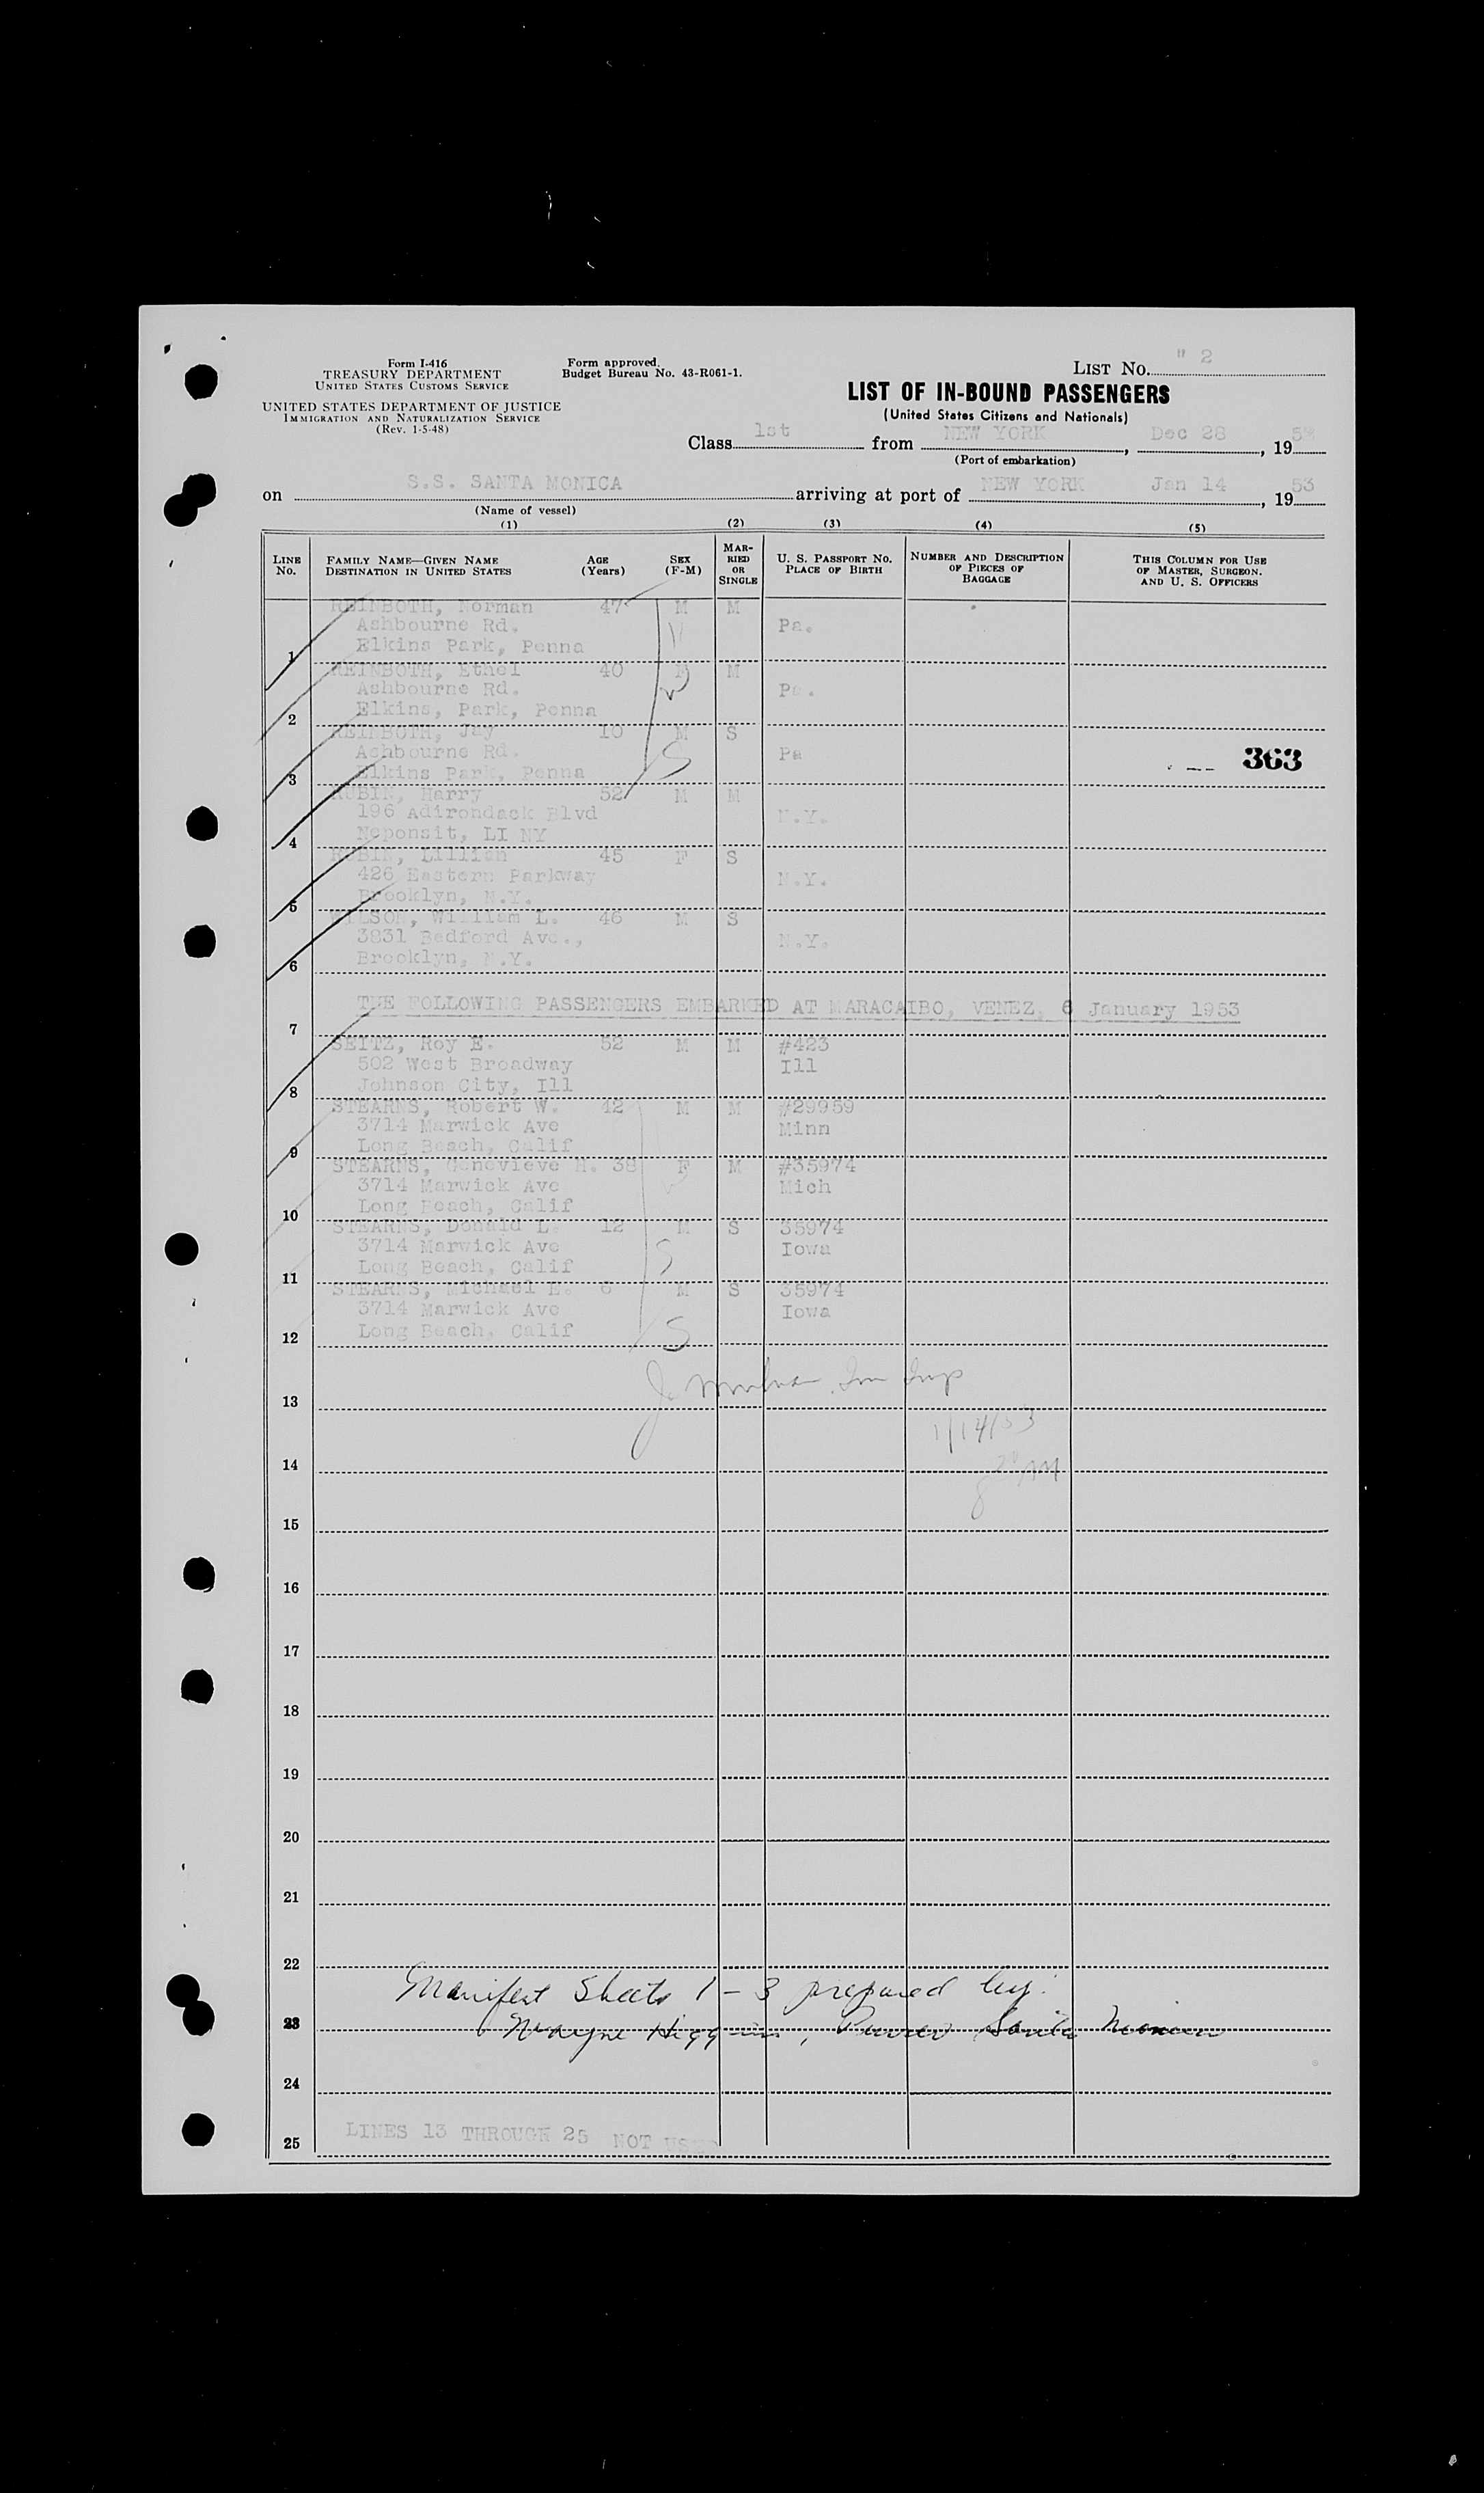 Form I-416
TREASURY DEPARTMENT
UNITED STATES CUSTOMS SERVICE
UNITED STATES DEPARTMENT OF JUSTICE
IMMIGRATION AND NATURALIZATION SERVICE
(Rev. 1-5-48)
Form approved.
Budget Bureau No. 43-R061-1.
LIST NO. " 2
LIST OF IN-BOUND PASSENGERS
(United States Citizens and Nationals)
Class 1st from NEW YORK, Dec 28, 19
(Port of embarkation)
on S.S. SANTA MONICA arriving at port of NEW YORK Jan 14, 1953
(Name of vessel)
(1) (2) (3) (4) (5)
LINE NO. FAMILY NAME—GIVEN NAME DESTINATION IN UNITED STATES AGE (Years) SEX (F-M) MARRIED OR SINGLE U. S. PASSPORT NO. PLACE OF BIRTH NUMBER AND DESCRIPTION OF PIECES OF BAGGAGE THIS COLUMN FOR USE OF MASTER, SURGEON, AND U. S. OFFICERS
REINBOTH, Norman 47 M M
Ashbourne Rd. Pa.
1 Elkins Park, Penna
REINBOTH, Ethel 40 F M
Ashbourne Rd. Pa.
2 Elkins, Park, Penna
REINBOTH, Jay 10 M S
Ashbourne Rd. Pa 363
3 Elkins Park, Penna
RUBIN, Harry 52 M M
196 Adirondack Blvd N.Y.
4 Neponsit, LI NY
RUBIN, Lillian 45 F S
426 Eastern Parkway N.Y.
5 Brooklyn, N.Y.
WILSON, William L. 46 M S
3831 Bedford Ave., N.Y.
6 Brooklyn, N.Y.
THE FOLLOWING PASSENGERS EMBARKED AT MARACAIBO, VENEZ, 6 January 1953
7
SEITZ, Roy E. 52 M M #423
502 West Broadway Ill
8 Johnson City, Ill
STEARNS, Robert W. 42 M M #29959
3714 Marwick Ave Minn
9 Long Beach, Calif
STEARNS, Genevieve H. 38 F M #35974
3714 Marwick Ave Mich
10 Long Beach, Calif
STEARNS, Donald L. 12 M S 35974
3714 Marwick Ave Iowa
11 Long Beach, Calif
STEARNS, Michael E. 6 M S 35974
3714 Marwick Ave Iowa
12 Long Beach, Calif
13
1/14/53
14
15
16
17
18
19
20
21
22
Manifest Sheets 1-3 prepared by:
23 Wayne Higgins, Purser Santa Monica
24
LINES 13 THROUGH 25 NOT USED
25